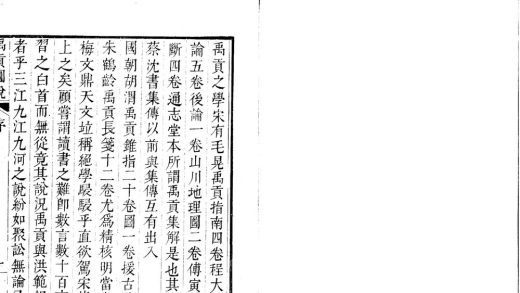 禹貢之學宋有毛晃禹貢指南四卷程大
論五卷後論一卷山川地理圖二卷傅寅
斷四卷通志堂本所謂禹貢集解是也其
蔡沈書集傳以前與集傳互有出入
國朝胡渭禹貢錐指二十卷圖一卷援古
朱鶴齡禹貢長箋十二卷尤爲精核明當
梅文鼎天文竝稱絕學駸駸乎直欲駕宋
上之矣顧嘗謂讀書之難卽數言數十百
習之白首而無從竟其說況禹貢與洪範
者乎三江九江九河之說紛如聚訟無論
禹貢圖說 序